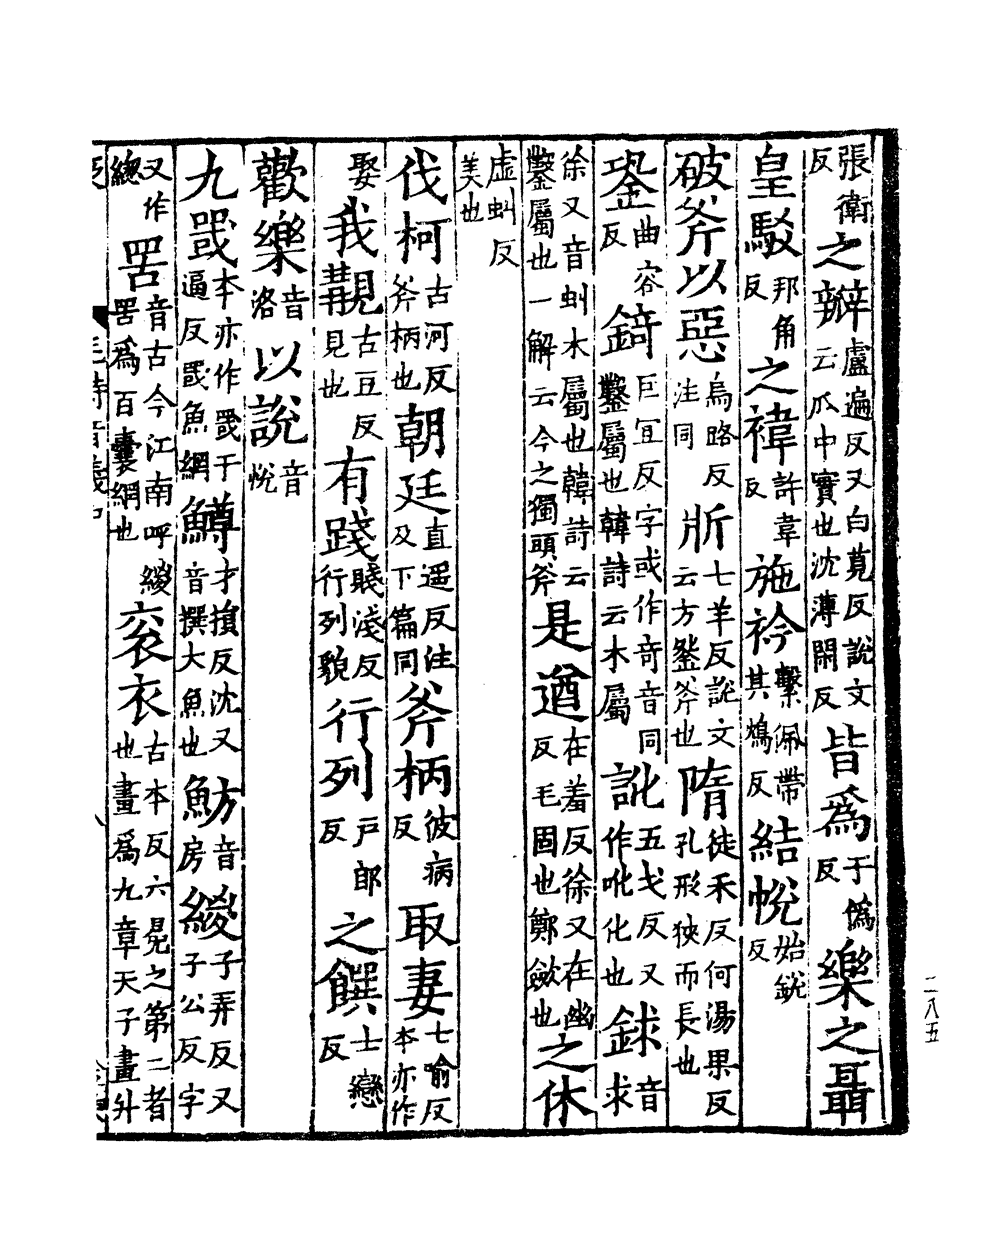 張衛反之瓣盧遍反又白莧反說文云瓜中實也沈薄閑反皆爲于僞反樂之聶
皇駁邦角反之褘許韋反施衿繫佩帶其鴆反結帨始銳反
破斧以惡烏路反注同斨七羊反說文云方銎斧也隋徒禾反何湯果反孔形狹而長也
銎曲容反錡巨宜反字或作奇音同鑿屬也韓詩云木屬訛五戈反又作吪化也銶音求
徐又音虯木屬也韓詩云鑿屬也一解云今之獨頭斧是遒在羞反徐又在幽反毛固也鄭歛也之休
虛虯反美也
伐柯古河反斧柄也朝廷直遥反注及下篇同斧柄彼病反取妻七喻反本亦作
娶我覯古豆反見也有踐賤淺反行列貌行列戶郎反之饌士戀反
歡樂音洛以說音悅
九罭本亦作罭于逼反罭魚網鱒才損反沈又音撰大魚也魴音房緵子弄反又子公反字
又作總罟音古今江南呼緵罟爲百囊網也衮衣古本反六冕之第二者也畫爲九章天子畫升
毛詩音義中
二八五